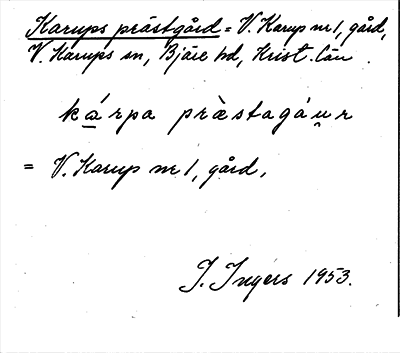 Karups prästgård = V. Karup nr 1, gård,
V. Karups sn, Bjäre hd, Krist. län.
ká̱rpa præ̀stagáu̯r
= V. Karup nr 1, gård.
I. Ingers 1953.